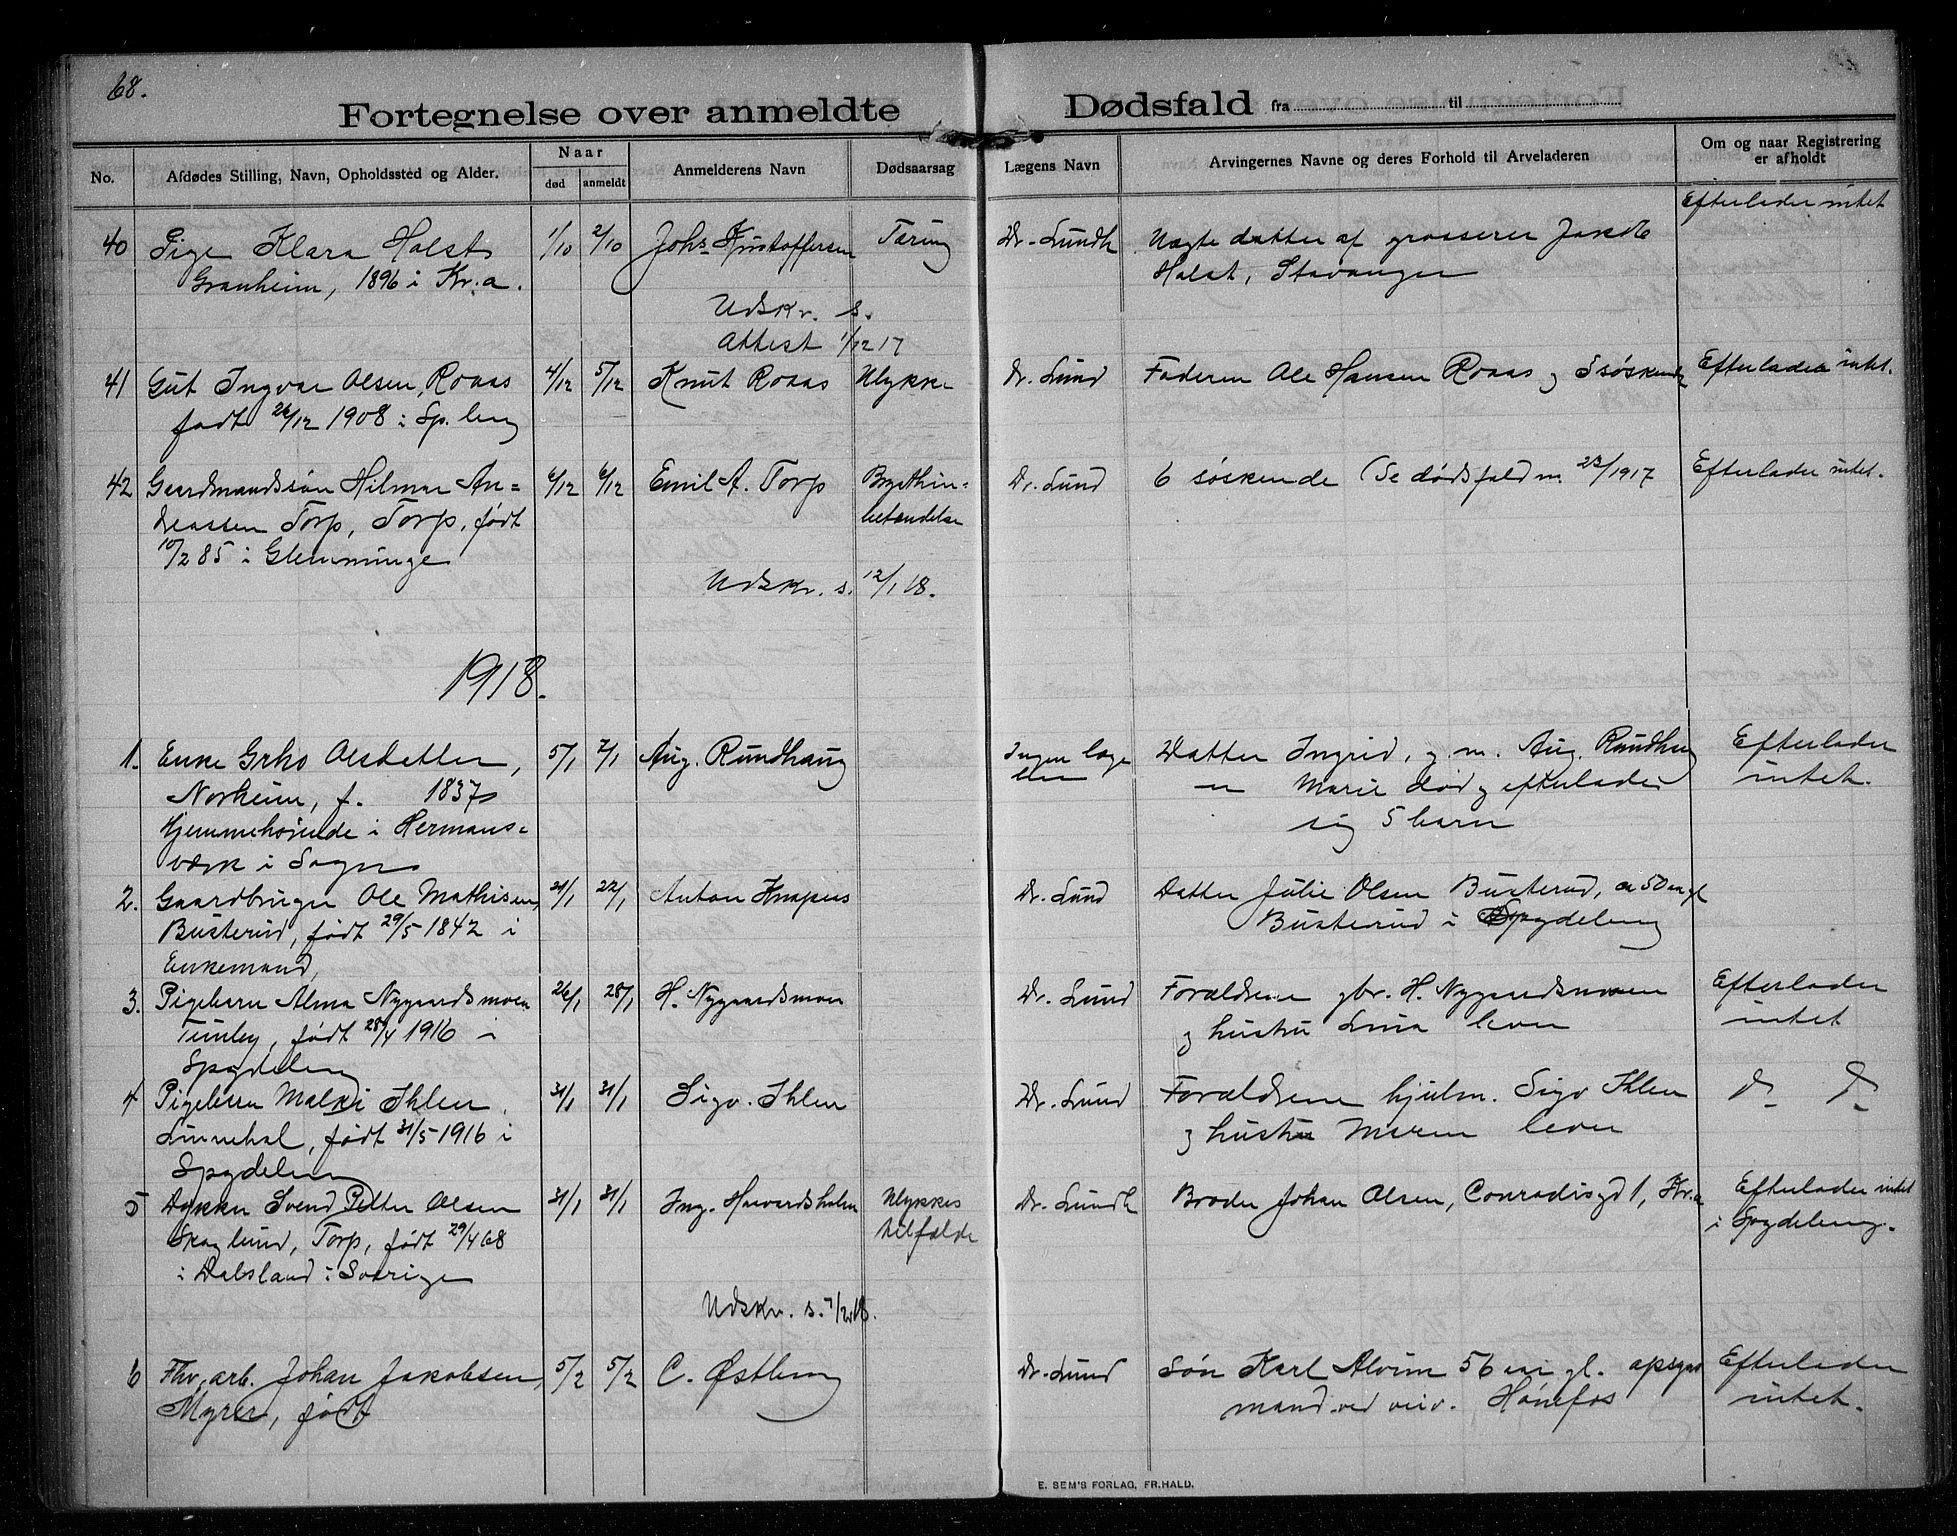 68.
Fortegnelse over anmeldte Dødsfald fra til
No.
Afdødes Stilling, Navn, Opholdssted og Alder.
Naar
død
anmeldt
Anmelderens Navn
Dødsaarsag
Lægens Navn
Arvingernes Navne og deres Forhold til Arveladeren
Om og naar Registrering
er afholdt
Efterlader intet
40 Pige Klara Holst 1/10 2/10 Johs Kristoffersen Tæring Dr. Lundh Uægte datter af grosserer Jakob
Granheim, 1896 i Kr.a. Holst, Stavanger
Udskr. s.
Attest 1/12 17
41 Gut Ingvar Olsen, Roaas 4/12 5/12 Knut Roaas Ulykke Dr. Lund Faderen Ole Hansen Roaas og 5 søskende Efterlader intet.
født 26/12 1908 i Sp.berg
42 Gaardmandssøn Hilmar An= 6/12 6/12 Emil A. Torp Brysthin= Dr. Lund 6 søskende (Se dødsfaldm. 23/1917 Efterlader intet.
dreassen Torp, Torp, født betændelse
10/2 85 i Glemminge
Udskr. s. 12/1 18.
1918.
1. Enke Olsdatter, 5/1 7/1 Aug. Rundhaug Ingen læge Datter Ingrid, g. m. Aug. Rundhaug Efterlader
Norheim, f. 1837 " Marie død og efterlader intet.
Hjemmehørende i Hermans= sig 5 barn
værk i Sogn
2. Gaardbruger Ole Mathisen, 21/1 22/1 Anton Knapus Dr. Lund Datter Julie Olsen Busterud, ca 50 aar gl
Busterud, født 29/5 1842 i Busterud i Spydeberg
Enkemand,
3. Pigebarn Alma Nygaardsmoen 26/1 28/1 H. Nygaardsmoen Dr. Lund Forældrene gbr. H. Nygaardsmoen Efterlader
født 28/4 1916 i og hustru Lina lever intet
Spydeberg
4 Pigebarn Ihlen, 31/1 31/1 Sigv. Ihlen Dr. Lund Forældrene hjulm. Sigv Ihlen d_ d_
født 31/5 1916 i og hustru Maren lever
Spydeberg
5 Dykker Svend Petter Olsen 31/1 31/1 Ing. Haavardsholm Ulykkes Dr. Lundh Broder Johan Olsen, Conradisgd 1, Kr.a Efterlader intet
Skoglund, Torp, født 29/4 68 tilfælde i Spydeberg.
i Dalsland i Sverige
Udskr. s. 7/2 18.
6 Fhv. arb. Johan Jakobsen, 5/2 5/2 C. Østberg Dr. Lund Søn Karl Alvim 56 aar gl. opsyns Efterlader
Myrer, født mand ved veiv. Hønefos intet.
E. SEM'S FORLAG, FR.HALD.